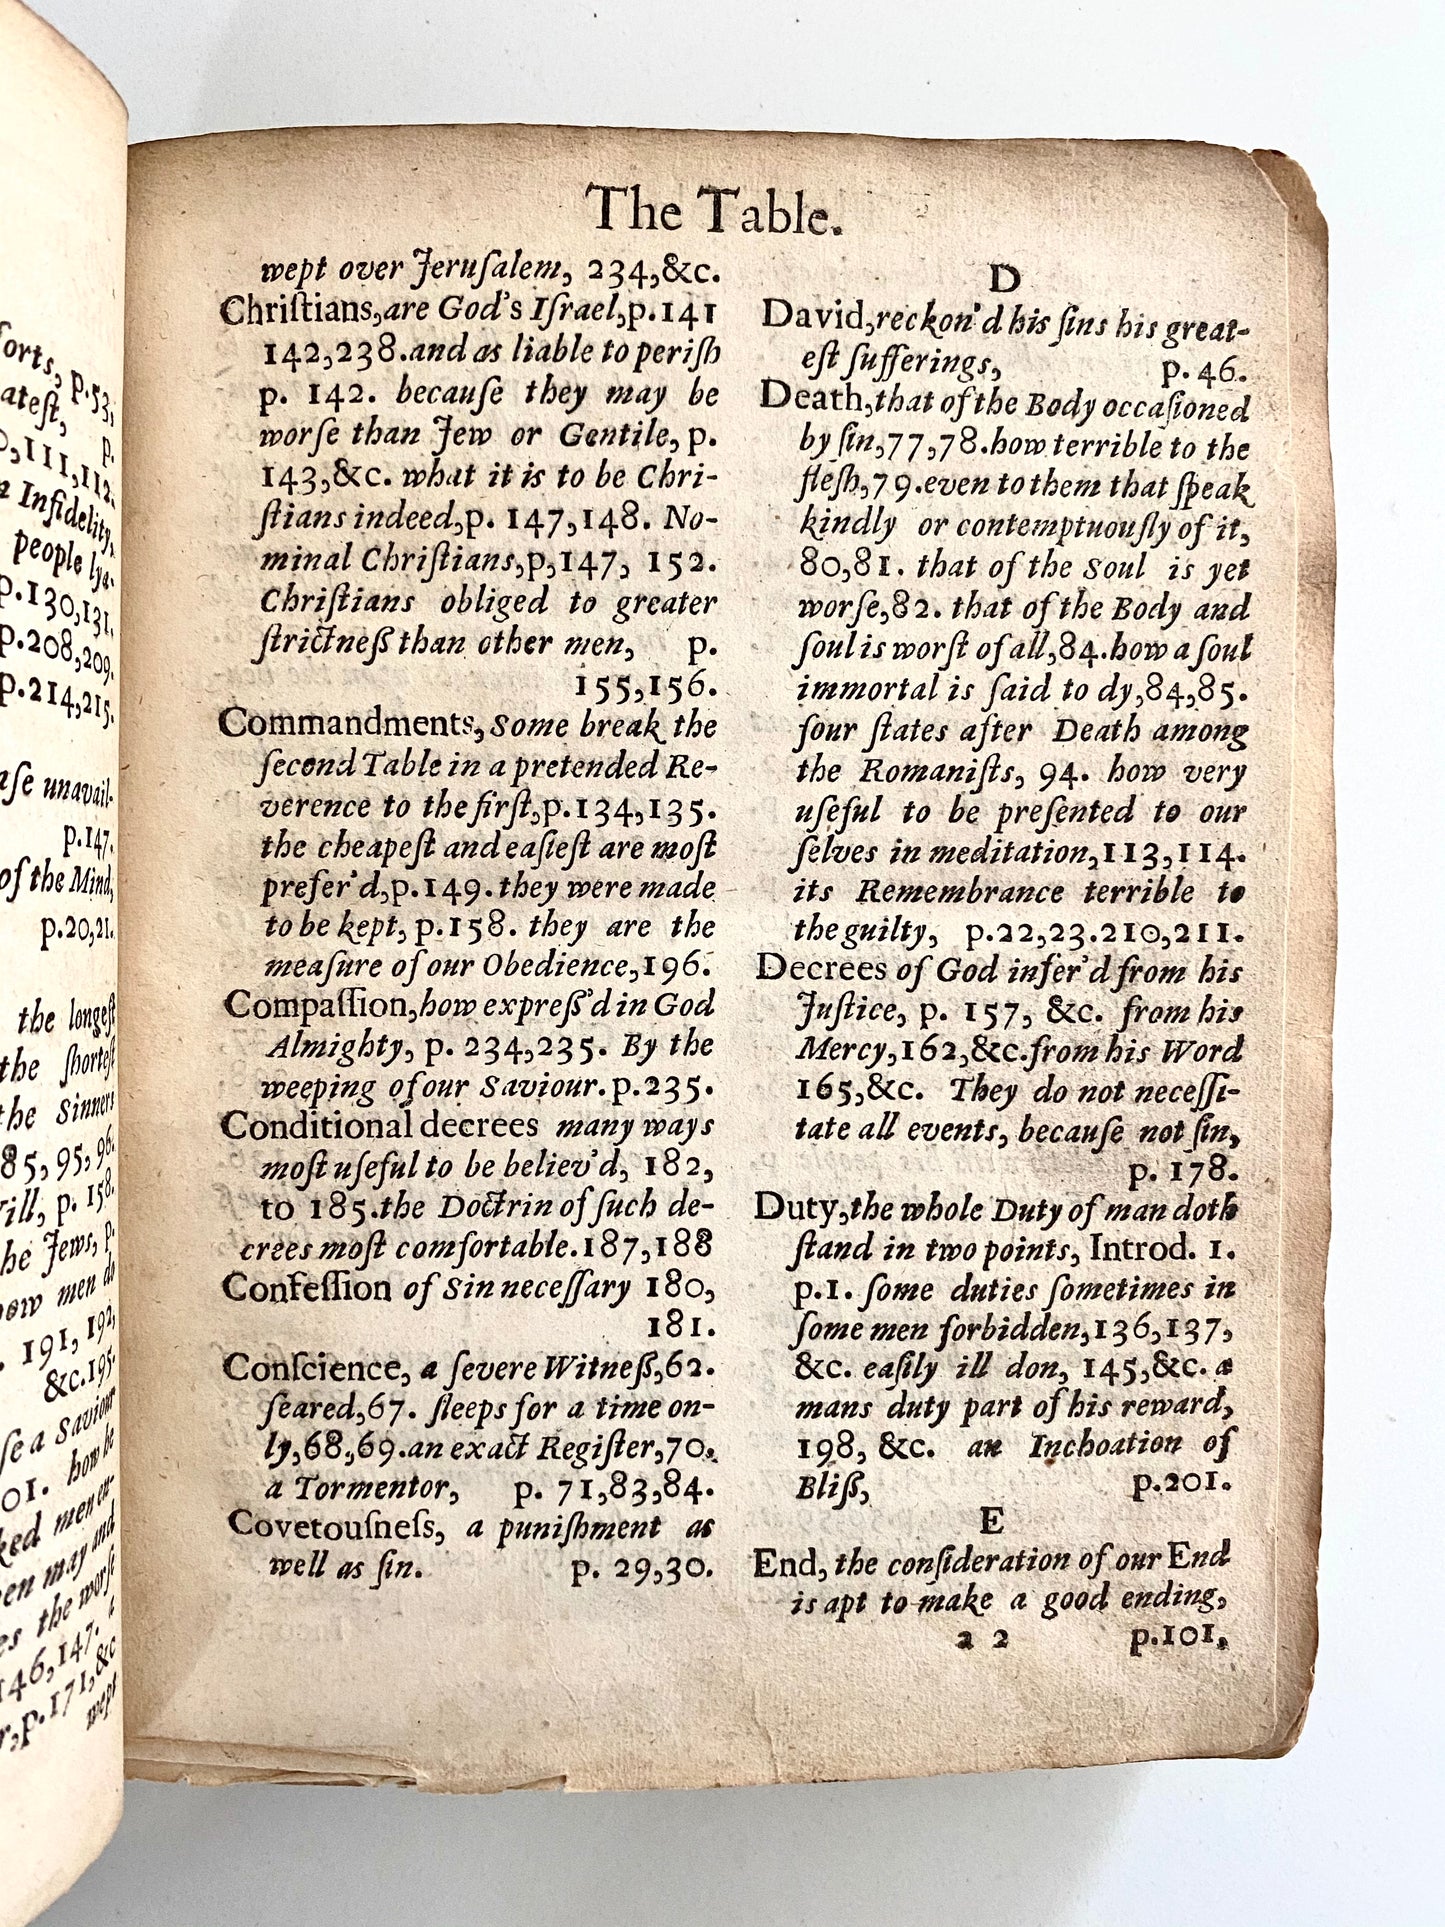 ſorts, p.53,
ateſt, p.
0,111,112.
Infidelity,
people lya-
p.130,131.
p.208,209.
p.214,215.
aſe unavail-
p.147.
of the Mind,
p.20,21.
the longeſt
the ſhorteſt
the Sinners
85,95,96.
Will, p. 158.
he Jews, p.
how men do
. 191, 192,
&c.195.
ſe a Saviour
01. how he
ked men en-
en may and
es the worſe
146,147.
r,p.171,&c
wept
The Table.
wept over Jeruſalem, 234,&c.
Chriſtians,are God's Iſrael,p.141
142,238.and as liable to periſh
p. 142. becauſe they may be
worſe than Jew or Gentile, p.
143,&c. what it is to be Chri-
ſtians indeed,p. 147,148. No-
minal Chriſtians,p,147, 152.
Chriſtians obliged to greater
ſtrictneß than other men, p.
155,156.
Commandments, some break the
ſecond Table in a pretended Re-
verence to the firſt,p.134,135.
the cheapeſt and eaſieſt are moſt
prefer'd,p.149.they were made
to be kept, p.158. they are the
meaſure of our Obedience,196.
Compaſſion,how expreß'd in God
Almighty, p. 234,235. By the
weeping of our Saviour.p.235.
Conditional decrees many ways
moſt uſeful to be believ'd, 182,
to 185.the Doctrin of ſuch de-
crees moſt comfortable.187,188
Confeſſion of Sin neceſſary 180,
181.
Conſcience, a ſevere Witneß,62.
ſeared,67. ſleeps for a time on-
ly,68,69.an exact Regiſter,70.
a Tormentor, p. 71,83,84.
Covetouſneſs, a puniſhment as
well as ſin. p. 29,30.
D
David,reckon'd his ſins his great-
eſt ſufferings, p. 46.
Death,that of the Body occaſioned
by ſin,77,78.how terrible to the
fleſh,79.even to them that ſpeak
kindly or contemptuouſly of it,
80,81. that of the Soul is yet
worſe,82. that of the Body and
ſoul is worſt of all,84.how a ſoul
immortal is ſaid to dy,84,85.
four ſtates after Death among
the Romaniſts, 94. how very
uſeful to be preſented to our
ſelves in meditation,113,114.
its Remembrance terrible to
the guilty, p.22,23.210,211.
Decrees of God infer'd from his
Juſtice, p. 157, &c. from his
Mercy,162,&c.from his Word
165,&c. They do not neceſſi-
tate all events, becauſe not ſin,
p. 178.
Duty,the whole Duty of man doth
ſtand in two points, Introd. 1.
p.1. ſome duties ſometimes in
ſome men forbidden,136,137,
&c. eaſily ill don, 145,&c. a
mans duty part of his reward,
198, &c. an Inchoation of
Bliß, p.201.
E
End, the conſideration of our End
is apt to make a good ending,
a 2 p.101.